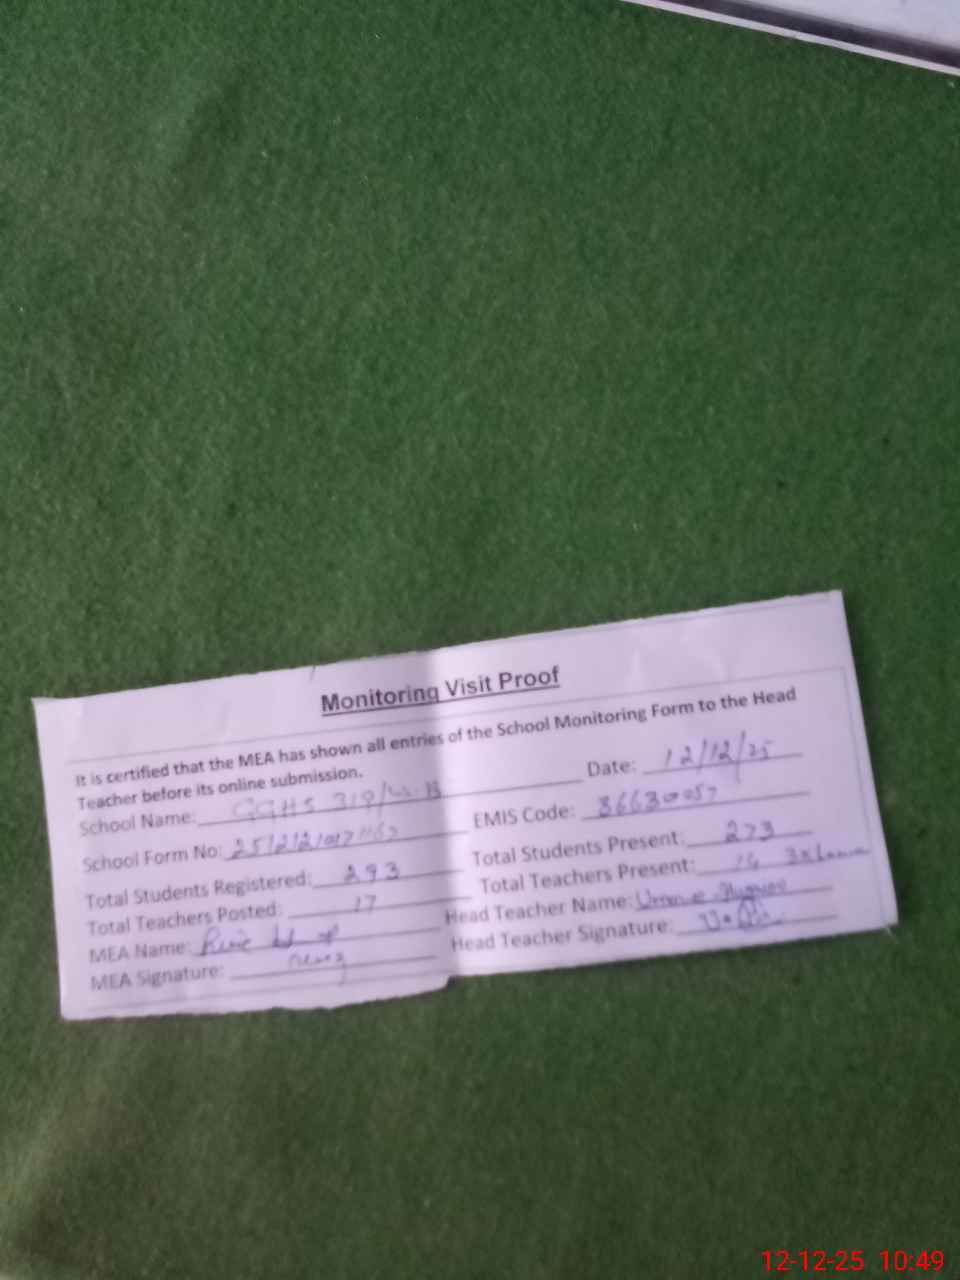 Monitoring Visit Proof
It is certified that the MEA has shown all entries of the School Monitoring Form to the Head
Teacher before its online submission.
Date: 12/12/25
School Name: GGHS 319/W.B
EMIS Code: 36630057
School Form No:
Total Students Present: 273
Total Students Registered: 293
Total Teachers Present: 14
Total Teachers Posted: 17
Head Teacher Name:
MEA Name:
Head Teacher Signature:
MEA Signature:
12-12-25 10:49